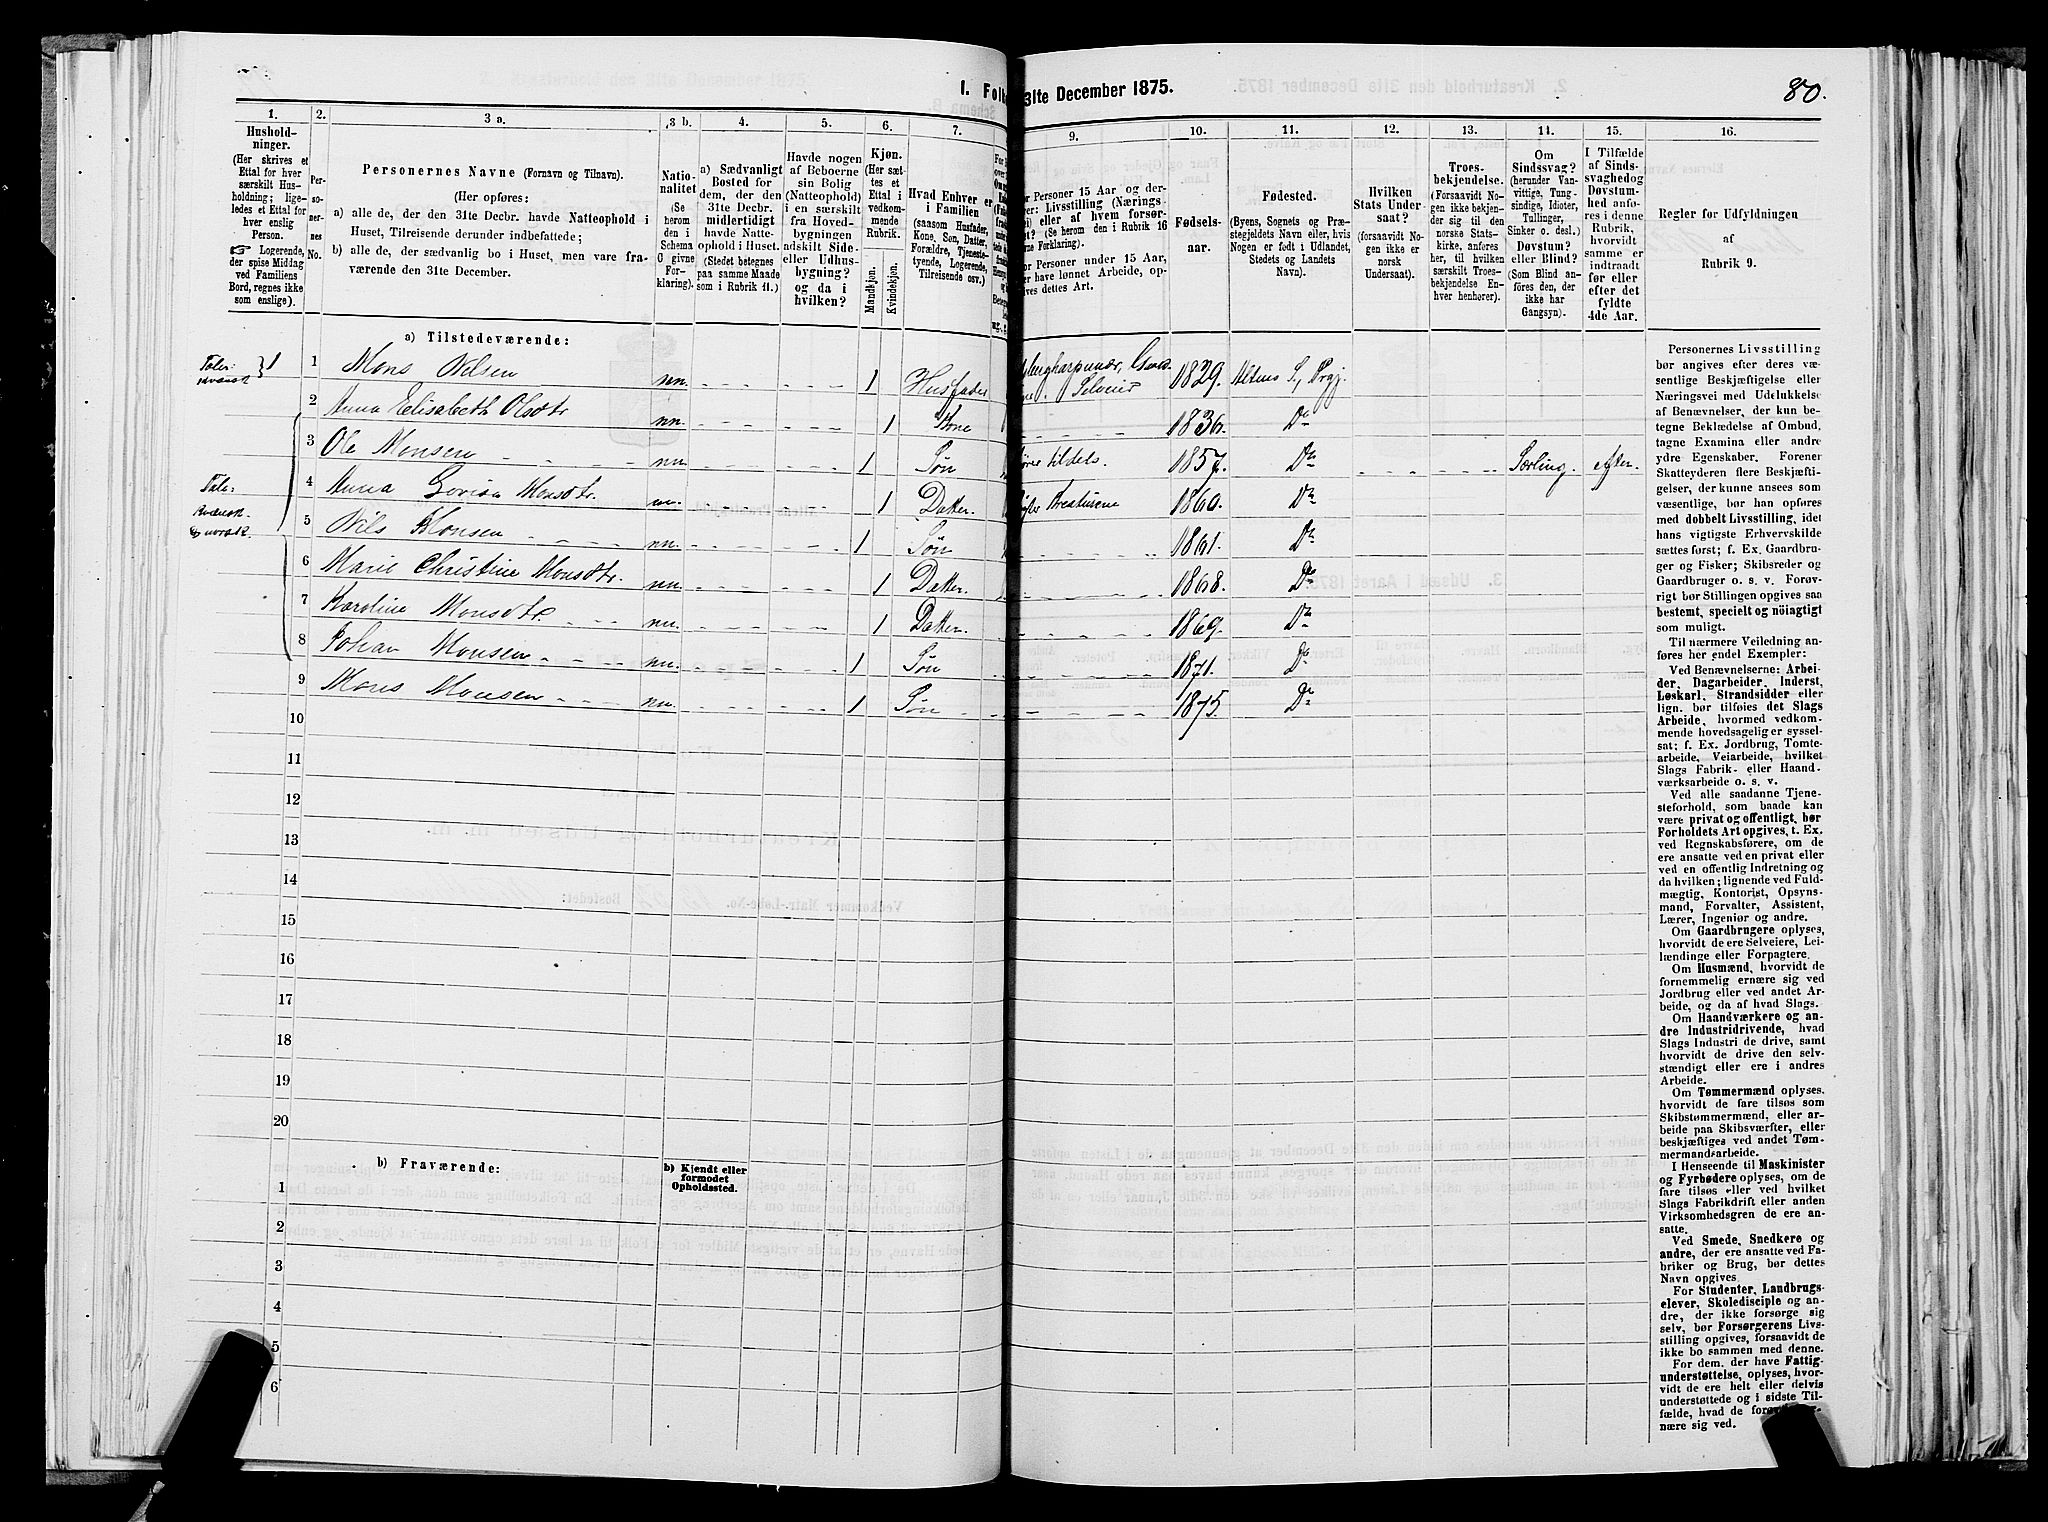 I. Folke
31te December 1875.
80.
1.
Hushold-
ninger.
(Her skrives et
Ettal for hver
særskilt Hus-
holdning; lige-
ledes et Ettal for
hver enslig
Person.
Logerende,
der spise Middag
ved Familiens
Bord, regnes ikke
som enslige).
2.
Per-
so-
ner-
nes
No.
3 a.
Personernes Navne (Fornavn og Tilnavn).
(Her opføres:
a) alle de, der den 31te Decbr. havde Natteophold i
Huset, Tilreisende derunder indbefattede;
b) alle de, der sædvanlig bo i Huset, men vare fra-
værende den 31te December.
3 b.
Natio-
nalitet
(Se
herom
den i
Schema
G givne
For-
klaring).
4.
a) Sædvanligt
Bosted for
dem, der den
31te Decbr.
midlertidigt
havde Natte-
ophold i Huset.
(Stedet betegnes
paa samme Maade
som i Rubrik 11.)
5.
Havde nogen
af Beboerne
sin Bolig
(Natteophold)
i en særskilt
fra Hoved-
bygningen
adskilt Side-
eller Udhus-
bygning?
og da i
hvilken?
6.
Kjøn.
(Her sæt-
tes et
Ettal i
vedkom-
mende
Rubrik.
Mandkjøn.
Kvindekjøn.
7.
Hvad Enhver er
i Familien
(saasom Husfader,
Kone, Søn, Datter,
Forældre, Tjeneste-
tyende, Logerende,
Tilreisende osv.)
9.
or Personer 15 Aar og der-
ver: Livsstilling (Nærings-
ei) eller af hvem forsør-
et? (Se herom den i Rubrik 16
vne Forklaring).
or Personer under 15 Aar,
er have lønnet Arbeide, op-
ives dettes Art.
10.
Fødsels-
aar.
11.
Fødested.
(Byens, Sognets og Præ-
stegjeldets Navn eller, hvis
Nogen er født i Udlandet,
Stedets og Landets
Navn).
12.
Hvilken
Stats Under-
saat?
(forsaavidt No-
gen ikke er
norsk
Undersaat).
13.
Troes-
bekjendelse.
(Forsaavidt No-
gen ikke bekjen-
der sig til den
norske Stats-
kirke, anføres
her, til hvilken
særskilt Troes-
bekjendelse En-
hver henhører).
14.
Om
Sindssvag?
(herunder Van-
vittige, Tung-
sindige, Idioter,
Tullinger,
Sinker o. desl.)
Døvstum?
eller Blind?
(Som Blind an-
føres den, der
ikke har
Gangsyn).
15.
I Tilfælde
af Sinds-
svaghed og
Døvstum-
hed anfø-
res i denne
Rubrik,
hvorvidt
samme er
indtraadt
før eller
efter det
fyldte
4de Aar.
16.
Regler for Udfyldningen
af
Rubrik 9.
a) Tilstedeværende:
1 1 Mons Nilsen nn. 1 Husfader Selveier 1829. Altens S., Prgj.
2 Anna Elisabeth Olsdtr nn. 1 Kone 1836. Do
3 Ole Monsen nn. 1 Søn tildels. 1857. Do Særling. efter.
4 Anna Monsdtr. nn. 1 Datter. Kreaturene 1860. Do
5 Nils Monsen nn. 1 Søn 1861. Do
6 Marie Christine Monsdtr. nn. 1 Datter. 1868. Do
7 Karoline Monsdtr. nn. 1 Datter. 1869. Do
8 Johan Monsen nn. 1 Søn 1871. Do
9 Mons Monsen nn. 1 Søn 1875. Do
10
11
12
13
14
15
16
17
18
19
20
b) Fraværende:
b) Kjendt eller
formodet
Opholdssted.
1
2
3
4
5
6
Personernes Livsstilling
bør angives efter deres væ-
sentlige Beskjæftigelse eller
Næringsvei med Udelukkelse
af Benævnelser, der kun be-
tegne Beklædelse af Ombud,
tagne Examina eller andre
ydre Egenskaber. Forener
Skatteyderen flere Beskjæfti-
gelser, der kunne ansees som
væsentlige, bør han opføres
med dobbelt Livsstilling, idet
hans vigtigste Erhvervskilde
sættes først; f. Ex. Gaardbru-
ger og Fisker; Skibsreder og
Gaardbruger o. s. v. Forøv-
rigt bør Stillingen opgives saa
bestemt, specielt og nöiagtigt
som muligt.
Til nærmere Veiledning an-
føres her endel Exempler:
Ved Benævnelserne: Arbei-
der, Dagarbeider, Inderst,
Løskarl, Strandsidder eller
lign. bør tilføies det Slags
Arbeide, hvormed vedkom-
mende hovedsagelig er syssel-
sat; f. Ex. Jordbrug, Tomte-
arbeide, Veiarbeide, hvilket
Slags Fabrik- eller Haand-
værksarbeide o. s. v.
Ved alle saadanne Tjene-
steforhold, som baade kan
være privat og offentligt, bør
Forholdets Art opgives, t. Ex.
ved Regnskabsførere, om de
ere ansatte ved en privat eller
ved en offentlig Indretning og
da hvilken; lignende ved Fuld-
mægtig, Kontorist, Opsyns-
mand, Forvalter, Assistent,
Lærer, Ingeniør og andre.
Om Gaardbrugere oplyses,
hvorvidt de ere Selveiere, Lei-
lændinge eller Forpagtere.
Om Husmænd, hvorvidt de
fornemmelig ernære sig ved
Jordbrug eller ved andet Ar-
beide, og da af hvad Slags.
Om Haandværkere og an-
dre Industridrivende, hvad
Slags Industri de drive, samt
hvorvidt de drive den selv-
stændigt eller ere i andres
Arbeide.
Om Tømmermænd oplyses,
hvorvidt de fare tilsøs som
Skibstømmermænd, eller ar-
beide paa Skibsværfter, eller
beskjæftiges ved andet Tøm-
mermandsarbeide.
I Henseende til Maskinister
og Fyrbødere oplyses, om de
fare tilsøs eller ved hvilket
Slags Fabrikdrift eller anden
Virksomhedsgren de ere an-
satte.
Ved Smede, Snedkere og
andre, der ere ansatte ved Fa-
briker og Brug, bør dettes
Navn opgives
For Studenter, Landbrugs-
elever, Skoledisciple og an-
dre, der ikke forsørge sig
selv, bør Forsørgerens Livs-
stilling opgives, forsaavidt de
ikke bo sammen med denne.
For dem, der have Fattig-
understøttelse, oplyses, hvor-
vidt de ere helt eller delvis
understøttede og i sidste Til-
fælde, hvad de
nære sig ved.